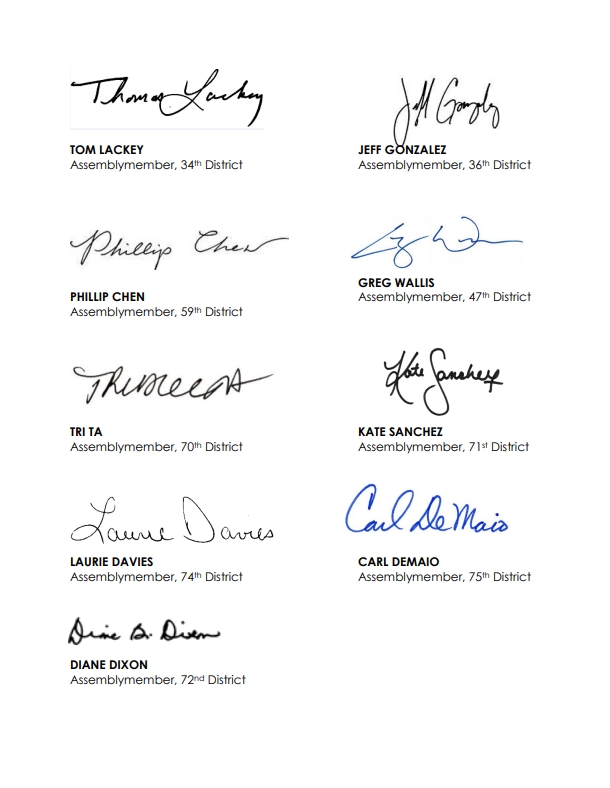 Thomas Lackey
TOM LACKEY
Assemblymember, 34th District
Jeff Gonzalez
JEFF GONZALEZ
Assemblymember, 36th District
Phillip Chen
PHILLIP CHEN
Assemblymember, 59th District
GREG WALLIS
Assemblymember, 47th District
TRI TA
Assemblymember, 70th District
Kate Sanchez
KATE SANCHEZ
Assemblymember, 71st District
Laurie Davies
LAURIE DAVIES
Assemblymember, 74th District
Carl DeMaio
CARL DEMAIO
Assemblymember, 75th District
Diane B. Dixon
DIANE DIXON
Assemblymember, 72nd District